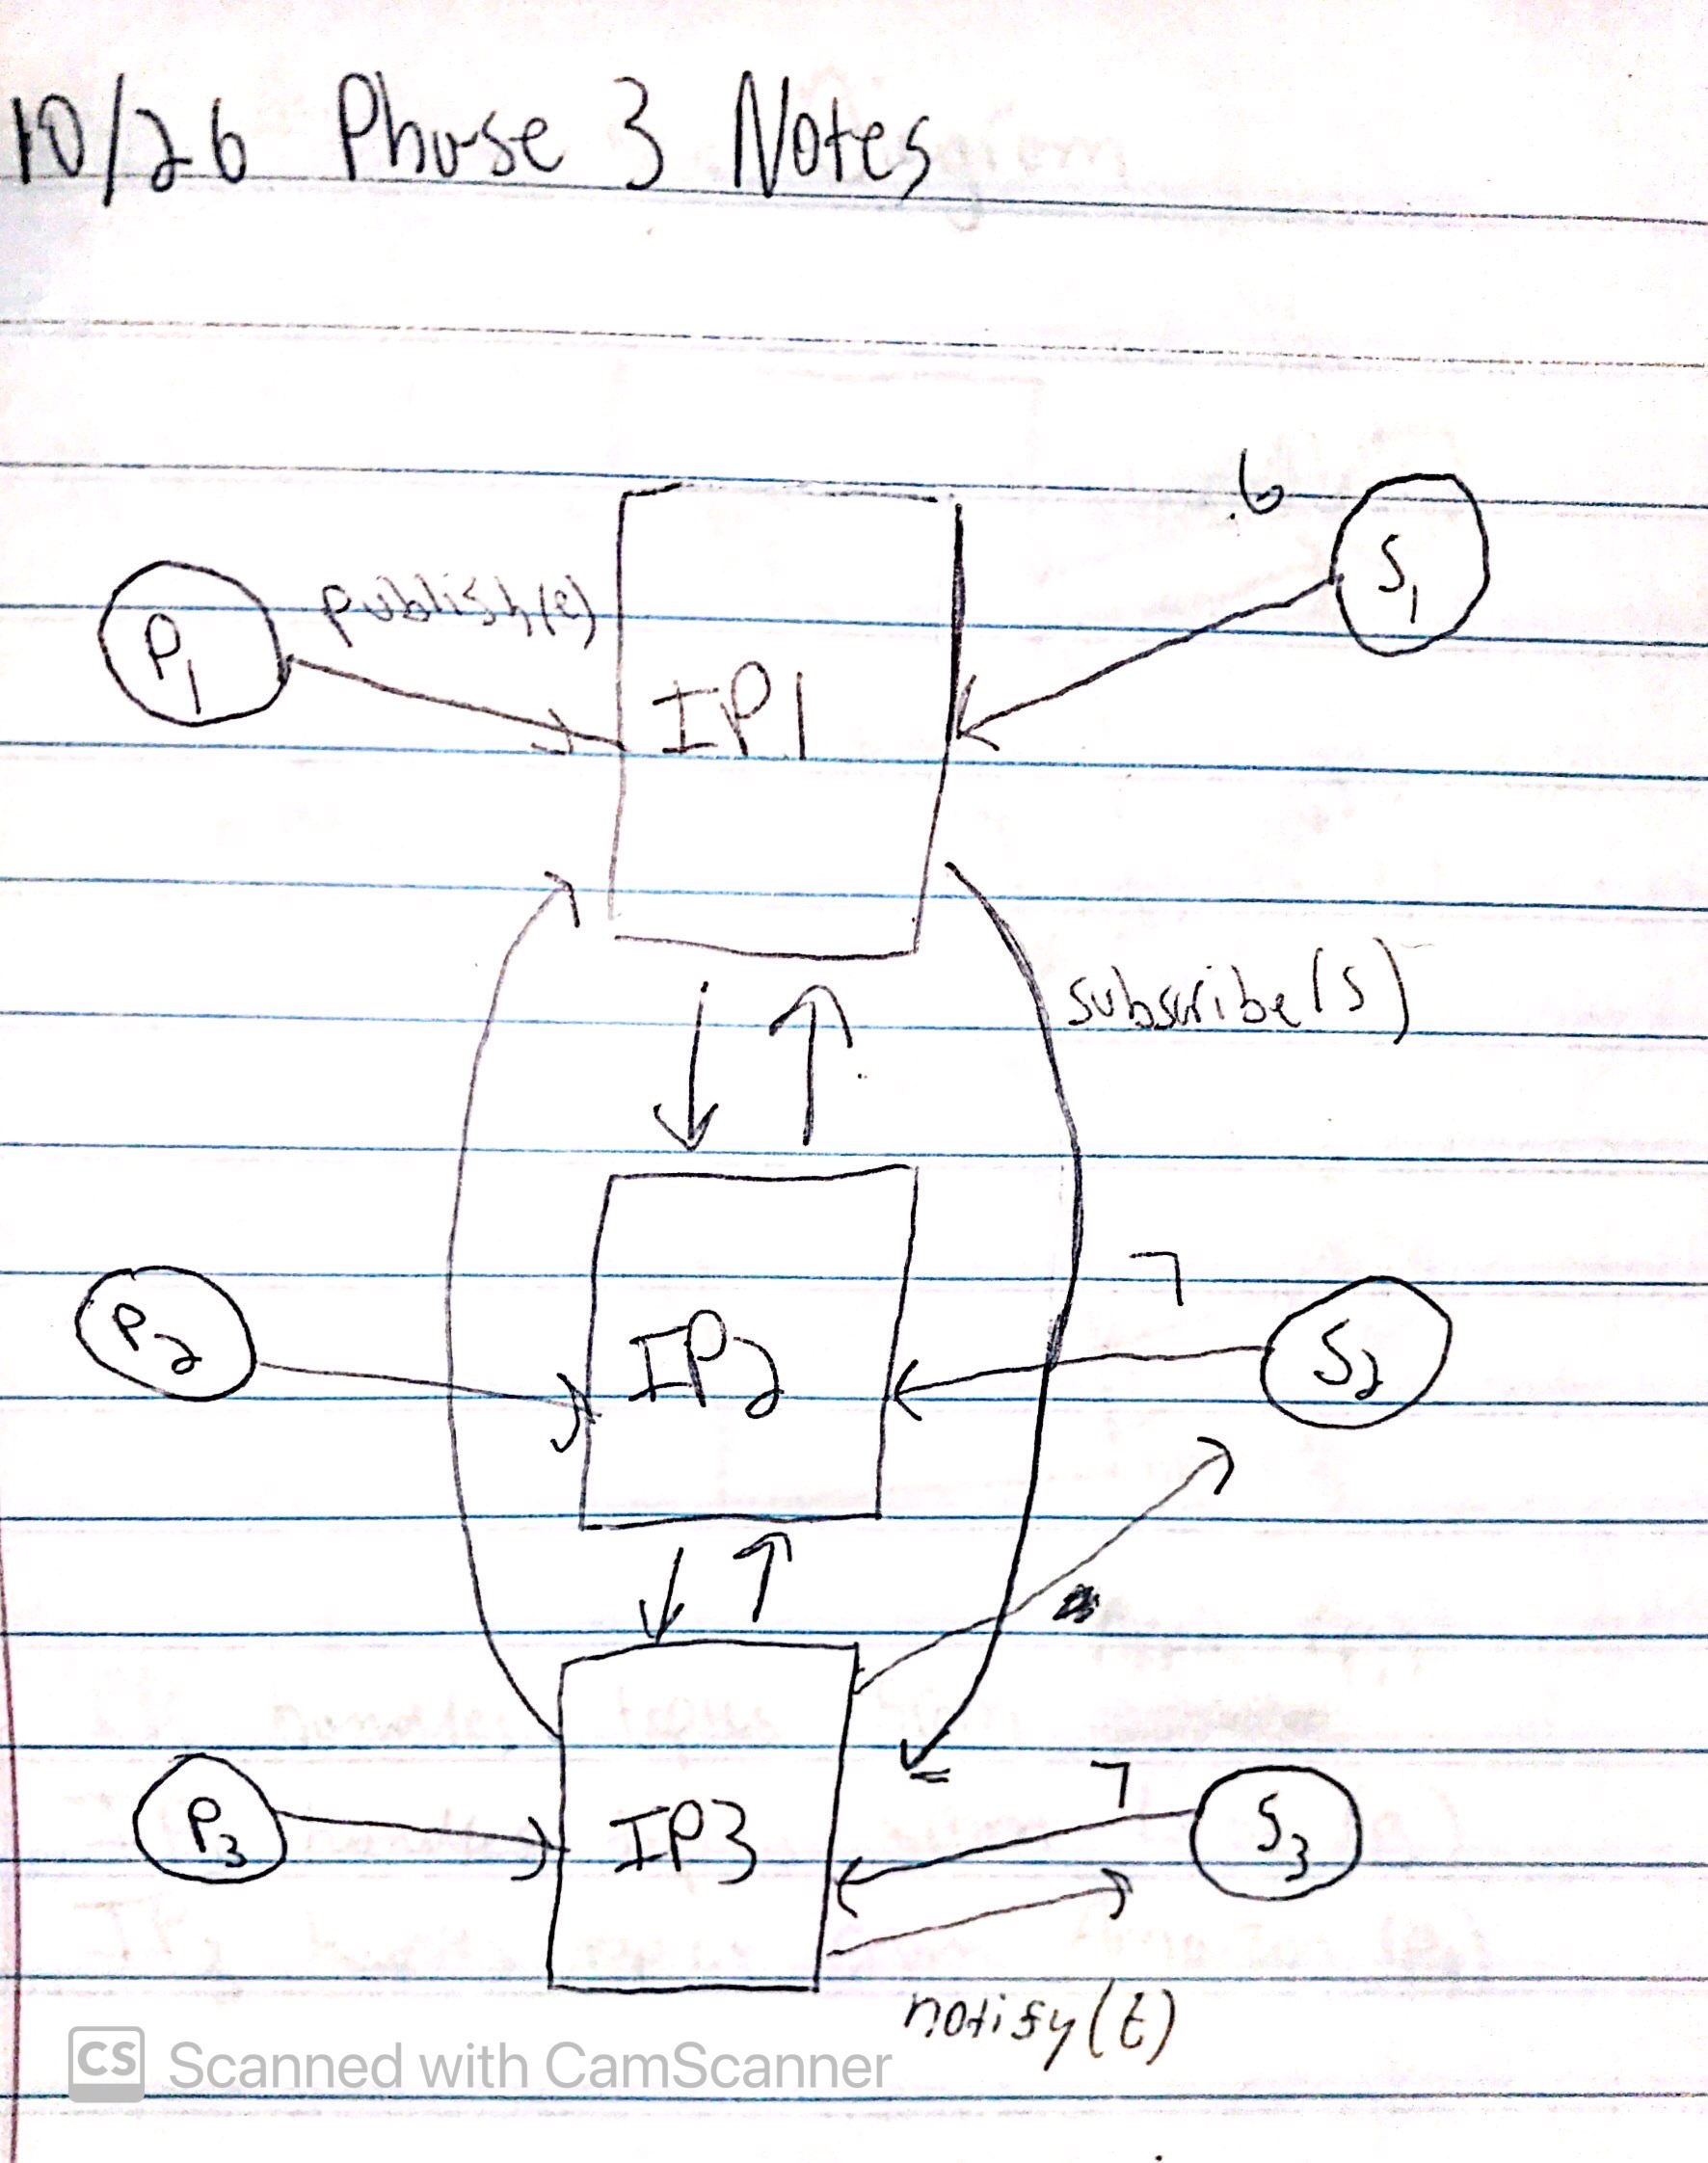 10/26 Phase 3 Notes
6
S1
P1
publish(e)
IP1
subscribe(s)
7
P2
IP2
S2
7
P3
IP3
S3
notify(t)
CS Scanned with CamScanner